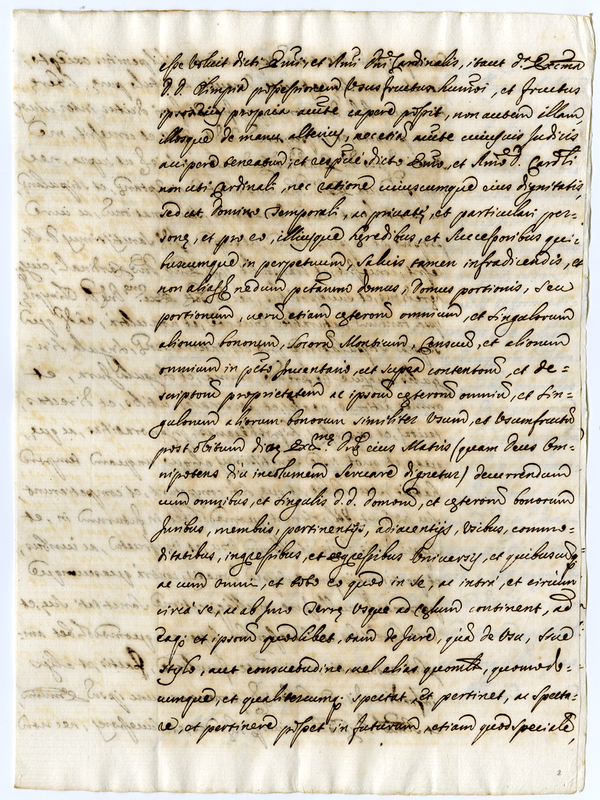 esse voluit dicti Emi, et Rmi Dni Cardinalis, itaut da. Excma
D. D. Olimpia possessionem Usus fructus humoi, et fructus
propria aucte capere possit, non autem illam,
illosque de manu alterius, nec etiã aucte cuiusuis Judicis
accipere teneatur, et respue dicto Emo, et Rmo D. Cardli
non uti Cardinali, nec ratione cuiuscumque eius dignitatis,
sed ut Domino Temporali, ac priuatę, et particulari per-
sonę, et pro eo, illiusque hęredibus, et successoribus qui-
buscumque in perpetuum, saluis tamen infradicendis, et
non alias nedum domus, Domus portionis, seu
portionum, uerum etiam cęterorum omnium, et singulorum
aliorum bonorum, Locorũ Montium, Censuum, et aliorum
omnium in pcto Inuentario, ut supra contentorũ, et de=
scriptorũ proprietatem ac ipsorũ cęterorũ omniũ, et sin=
gulorum aliorum bonorum similiter Usum, et Usumfructũ
post obitum dicę Excmę Dnę eius Matris (quam Deus Om-
nipotens diu incolumem seruare dignetur) decurrendum
cum omnibus, et singulis d.d. domorũ, et cęterorũ bonorum
Juribus, membris, pertinentijs, adiacentijs, Usibus, commo=
ditatibus, ingressibus, et egressibus Uniuersis, et quibuscuq
ac cum omni, et toto eo quod in se, ac intra, et circum
circa se, ac ab imo Terrę usque ad cęlum continent, ad
et ipsorũ quodlibet, tam de Jure, quã de Usu, siue
stylo, aut consuetudine, uel alias quomlt, quomodo=
cumque, et qualitercumq. spectat, et pertinet, ac specta=
re, et pertinere posset in futurum, etiam quod speciale,